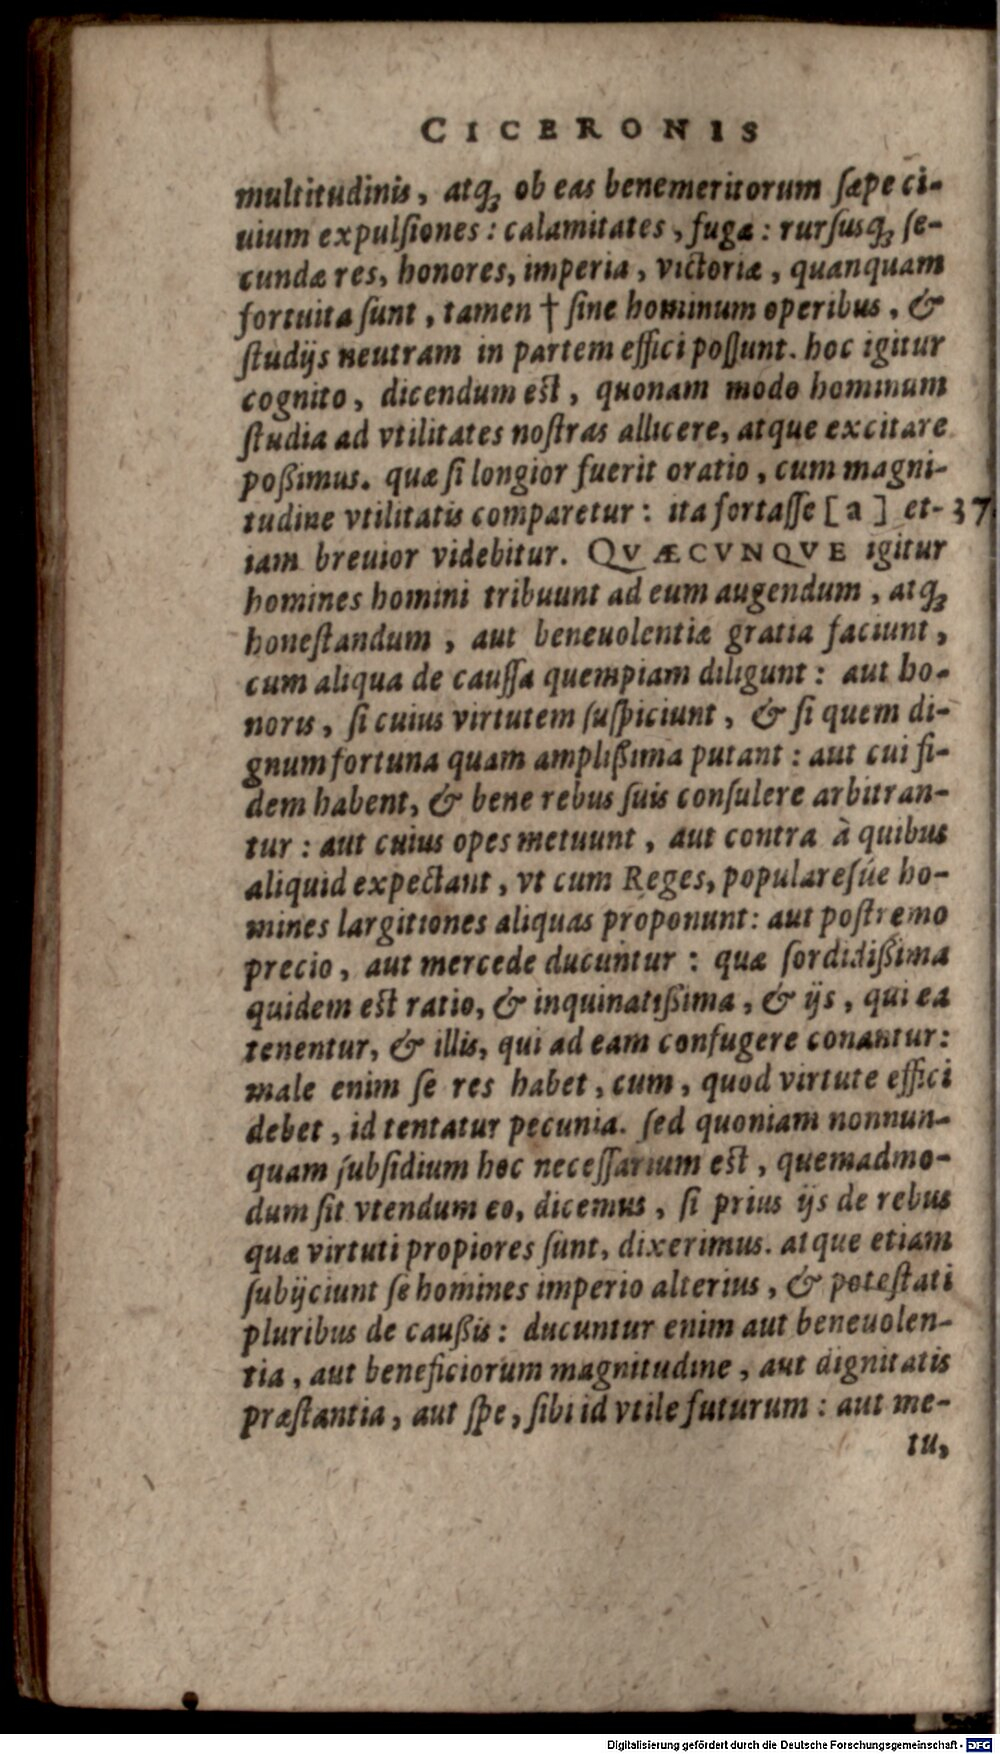 CICERONIS
multitudinis, atq; ob eas benemeritorum sæpe ci-
uium expulsiones: calamitates, fugæ: rursusq; se-
cundæ res, honores, imperia, victoriæ, quanquam
fortuita sunt, tamen † sine hominum operibus, &
studijs neutram in partem effici possunt. hoc igitur
cognito, dicendum est, quonam modo hominum
studia ad vtilitates nostras allicere, atque excitare
poßimus. quæ si longior fuerit oratio, cum magni-
tudine vtilitatis comparetur: ita fortasse [a] et- 37
iam breuior videbitur. QVÆCVNQVE igitur
homines homini tribuunt ad eum augendum, atq;
honestandum, aut beneuolentiæ gratia faciunt,
cum aliqua de caussa quempiam diligunt: aut ho-
noris, si cuius virtutem suspiciunt, & si quem di-
gnum fortuna quam amplißima putant: aut cui fi-
dem habent, & bene rebus suis consulere arbitran-
tur: aut cuius opes metuunt, aut contra à quibus
aliquid expectant, vt cum Reges, popularesúe ho-
mines largitiones aliquas proponunt: aut postremo
precio, aut mercede ducuntur: quæ sordidißima
quidem est ratio, & inquinatißima, & ijs, qui ea
tenentur, & illis, qui ad eam confugere conantur:
male enim se res habet, cum, quod virtute effici
debet, id tentatur pecunia. sed quoniam nonnun-
quam subsidium hoc necessarium est, quemadmo-
dum sit vtendum eo, dicemus, si prius ijs de rebus
quæ virtuti propiores sunt, dixerimus. atque etiam
subijciunt se homines imperio alterius, & potestati
pluribus de caußis: ducuntur enim aut beneuolen-
tia, aut beneficiorum magnitudine, aut dignitatis
præstantia, aut spe, sibi id vtile futurum: aut me-
tu,
Digitalisierung gefördert durch die Deutsche Forschungsgemeinschaft - DFG